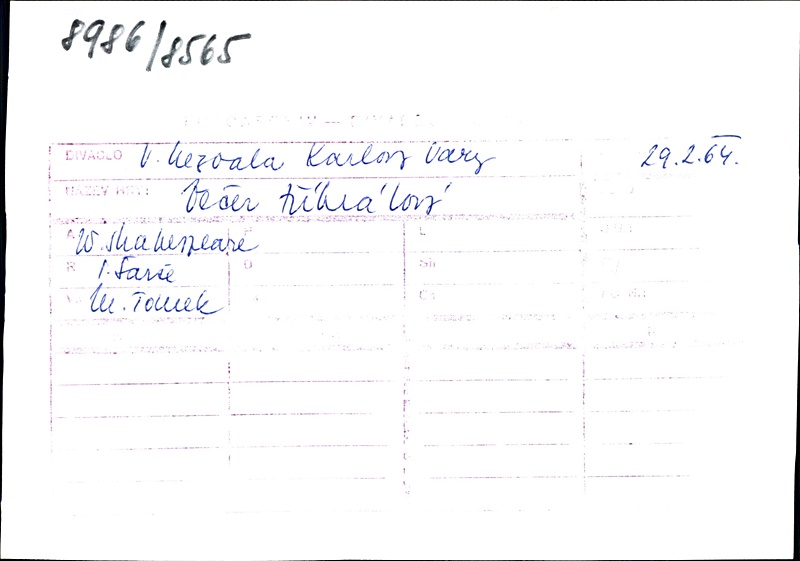 8986/8565
DIVADLO V. Nezvala Karlovy Vary 29.2.64.
NÁZEV HRY: Večer tříkrálový
W. Shakespeare
R
M. Tomek